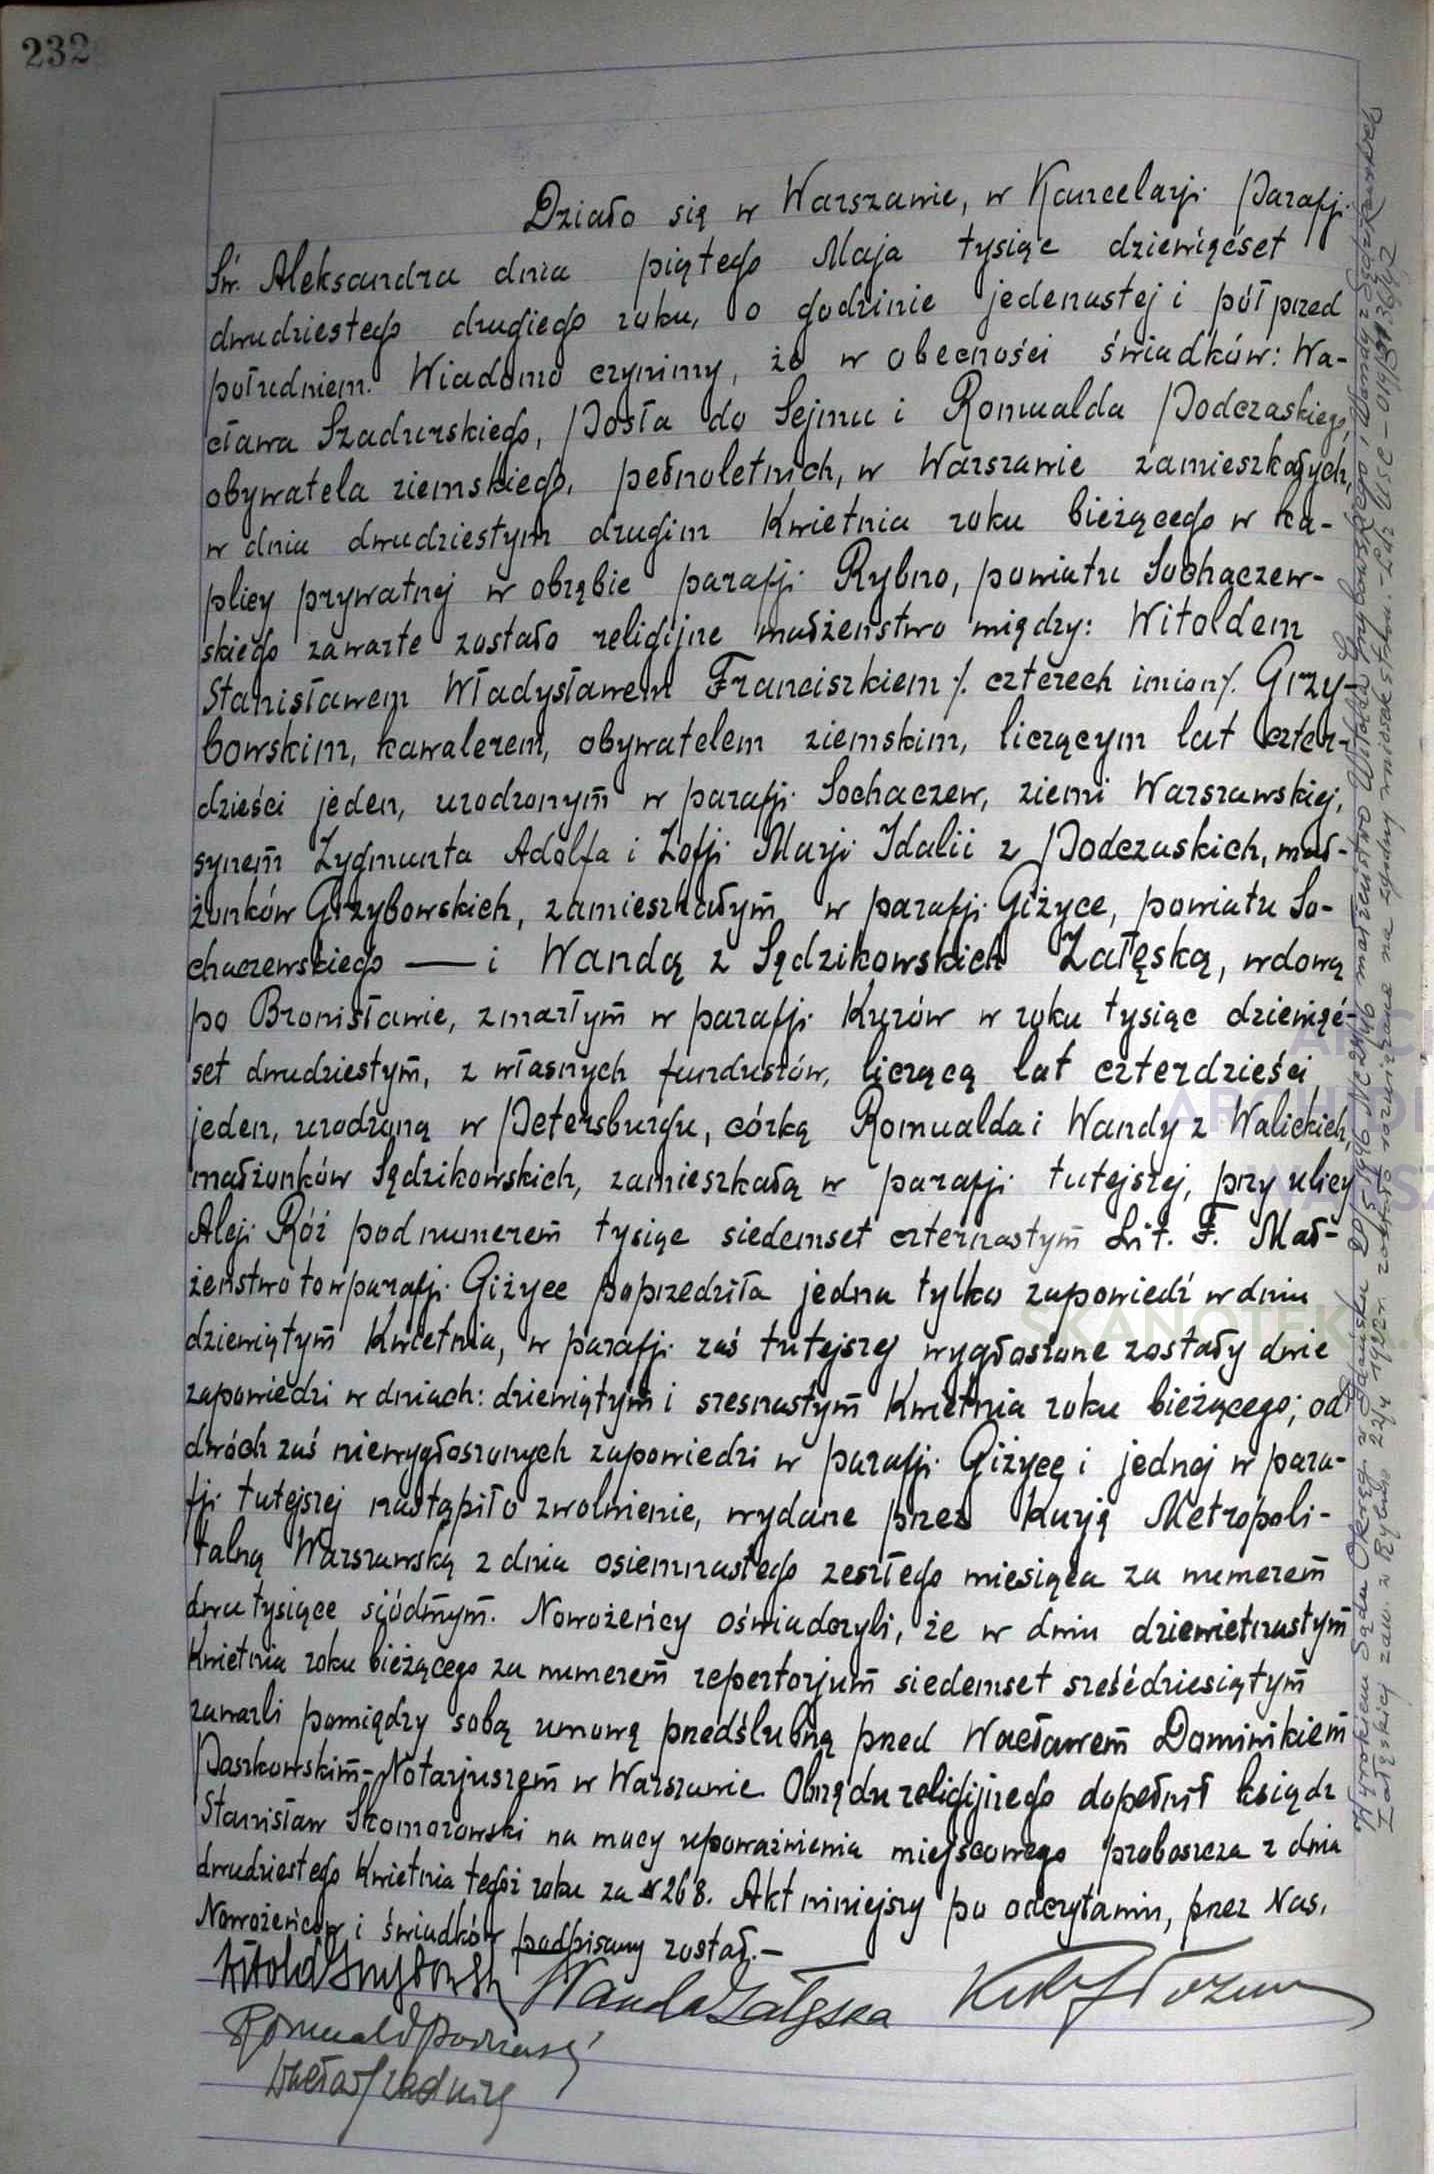 232
Działo się w Warszawie, w Kancelarji Parafji
Św. Aleksandra dnia piątego Maja tysiąc dziewięćset
dwudziestego drugiego roku, o godzinie jedenastej i pół przed
południem. Wiadomo czynimy, że w obecności świadków: Wa-
cława Szadurskiego, Posła do Sejmu i Romualda Podczaskiego,
obywatela ziemskiego, pełnoletnich, w Warszawie zamieszkałych,
w dniu dwudziestym drugim Kwietnia roku bieżącego w ka-
plicy prywatnej w obrębie parafji Rybno, powiatu Sochaczew-
skiego zawarte zostało religijne małżeństwo między: Witoldem
Stanisławem Władysławem Franciszkiem /. czterech imion /. Grzy-
bowskim, kawalerem, obywatelem ziemskim, liczącym lat czter-
dzieści jeden, urodzonym w parafji Sochaczew, ziemi Warszawskiej,
synem Zygmunta Adolfa i Zofji Marji Idalii z Podczaskich, mał-
żonków Grzybowskich, zamieszkałym w parafji Giżyce, powiatu So-
chaczewskiego — i Wandą z Sędzikowskich Załęską, wdową
po Bronisławie, zmarłym w parafji Kurów w roku tysiąc dziewięć-
set dwudziestym, z własnych funduszów, liczącą lat czterdzieści
jeden, urodzoną w Petersburgu, córką Romualda i Wandy z Walickich,
małżonków Sędzikowskich, zamieszkałą w parafji tutejszej, przy ulicy
Aleji Róż pod numerem tysiąc siedemset czternastym Lit. F. Mał-
żeństwo to w parafji Giżyce poprzedziła jedna tylko zapowiedź w dniu
dziewiątym Kwietnia, w parafji zaś tutejszej wygłoszone zostały dwie
zapowiedzi w dniach: dziewiątym i szesnastym Kwietnia roku bieżącego; od
dwóch zaś niewygłoszonych zapowiedzi w parafji Giżycę i jednej w para-
fji tutejszej nastąpiło zwolnienie, wydane przez Kurję Metropoli-
talną Warszawską z dnia osiemnastego zeszłego miesiąca za numerem
dwa tysiące siódmym. Nowożeńcy oświadczyli, że w dniu dziewietnastym
Kwietnia roku bieżącego za numerem repertorjum siedemset sześćdziesiątym
zawarli pomiędzy sobą umowę przedślubną przed Wacławem Dominikiem
Paszkowskim - Notarjuszem w Warszawie. Obrzędu religijnego dopełnił ksiądz
Stanisław Skomorowski na mocy upoważnienia miejscowego proboszcza z dnia
dwudziestego Kwietnia tegoż roku za № 268. Akt niniejszy po odczytaniu, przez Nas,
Nowożeńców i świadków podpisany został. —
Witold Grzybowski Wanda Załęska
Romuald Podczaski
Wacław Szadurski
Wyrokiem Sądu Okręg. w Gdańsku 20/5 1946 Nc 24/46 małżeństwo Witolda Grzybowskiego i Wandy z Sędzikowskich
Załęskiej zaw. w Rybno 22/4 1922 r. zostało rozwiązane na zgodny wniosek stron.
ARCHI
ARCHIDI
WARSZ
SKANOTEKA.G